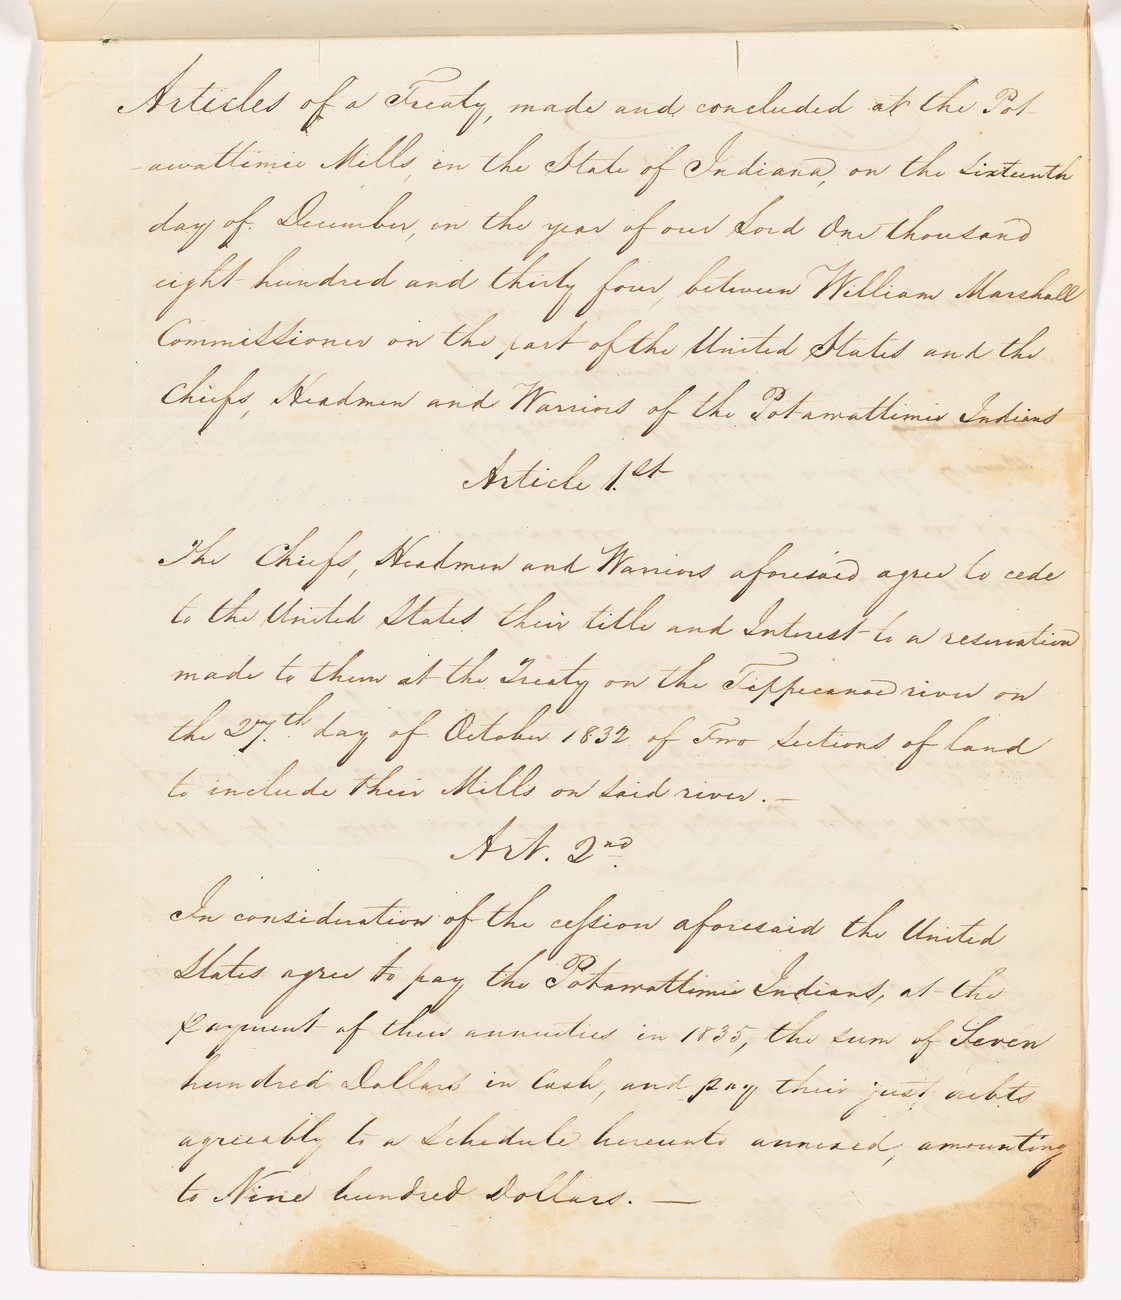 Articles of a Treaty, made and concluded at the Pot-
-awattimie Mills, in the State of Indiana, on the sixteenth
day of December, in the year of our Lord One thousand
eight hundred and thirty four, between William Marshall
Commissioner on the part of the United States and the
Chiefs, Headmen and Warriors of the Potawattimie Indians
Article 1.st
The Chiefs, Headmen and Warriors aforesaid agree to cede
to the United States their title and Interest to a reservation
made to them at the Treaty on the Tippecanoe river on
the 27.th day of October 1832 of Two Sections of land
to include their Mills on said river. —
Art. 2nd.
In consideration of the cession aforesaid the United
States agree to pay the Potawattimie Indians, at the
payment of their annuities in 1835, the sum of Seven
hundred Dollars in Cash, and pay their just debts
agreeably to a Schedule hereunto annexed, amounting
to Nine hundred Dollars. —